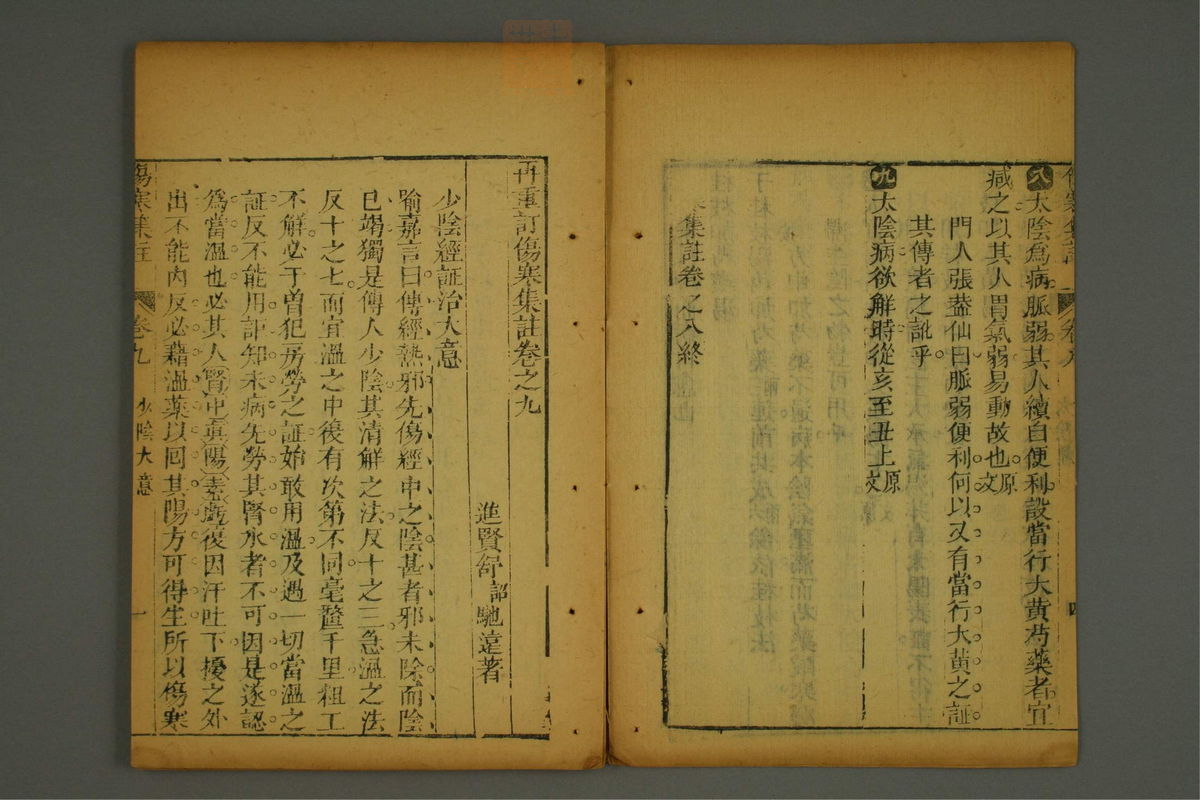 八太陰爲病脈弱其人續自便利設當行大黃芍藥者宜
減之以其人胃氣弱易動故也原文
門人張蓋仙曰脈弱便利何以又有當行大黃之証
其傳者之訛乎
九太陰病欲解時從亥至丑上原文
集註卷之八終
再重訂傷寒集註卷之九
進賢舒詔馳遠著
少陰經証治大意
喻嘉言曰傳經熱邪先傷經中之陰甚者邪未除而陰
已竭獨是傳人少陰其清解之法反十之三急溫之法
反十之七而宜溫之中復有次第不同毫釐千里粗工
不解必于曾犯房勞之証始敢用溫及遇一切當溫之
証反不能用詎知未病先勞其腎水者不可因是遂認
爲當溫也必其人腎中真陽素虧復因汗吐下擾之外
出不能內返必藉溫藥以回其陽方可得生所以傷寒
傷寒集註 卷九 少陰大意 一